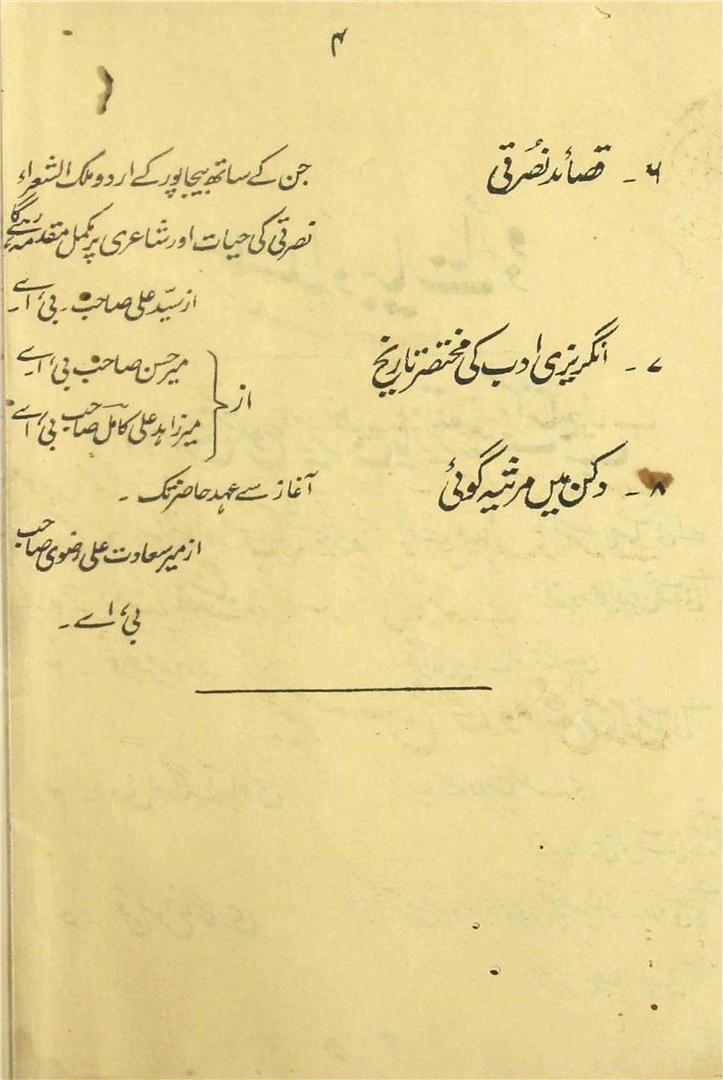 ۴
۶ - قصائد نصرتی
جن کے ساتھ بیجاپور کے اردو ملک الشعراء
نصرتی کی حیات اور شاعری پر مکمل مقدمہ
از سیّد علی صاحب - بی اے -
۷ - انگریزی ادب کی مختصر تاریخ
از
میر حسن صاحب بی اے
میرزاہد علی کامل صاحب بی اے
۸ - دکن میں مرثیہ گوئی
آغاز سے عہد حاضر تک -
از میر سعادت علی رضوی صاحب
بی اے -